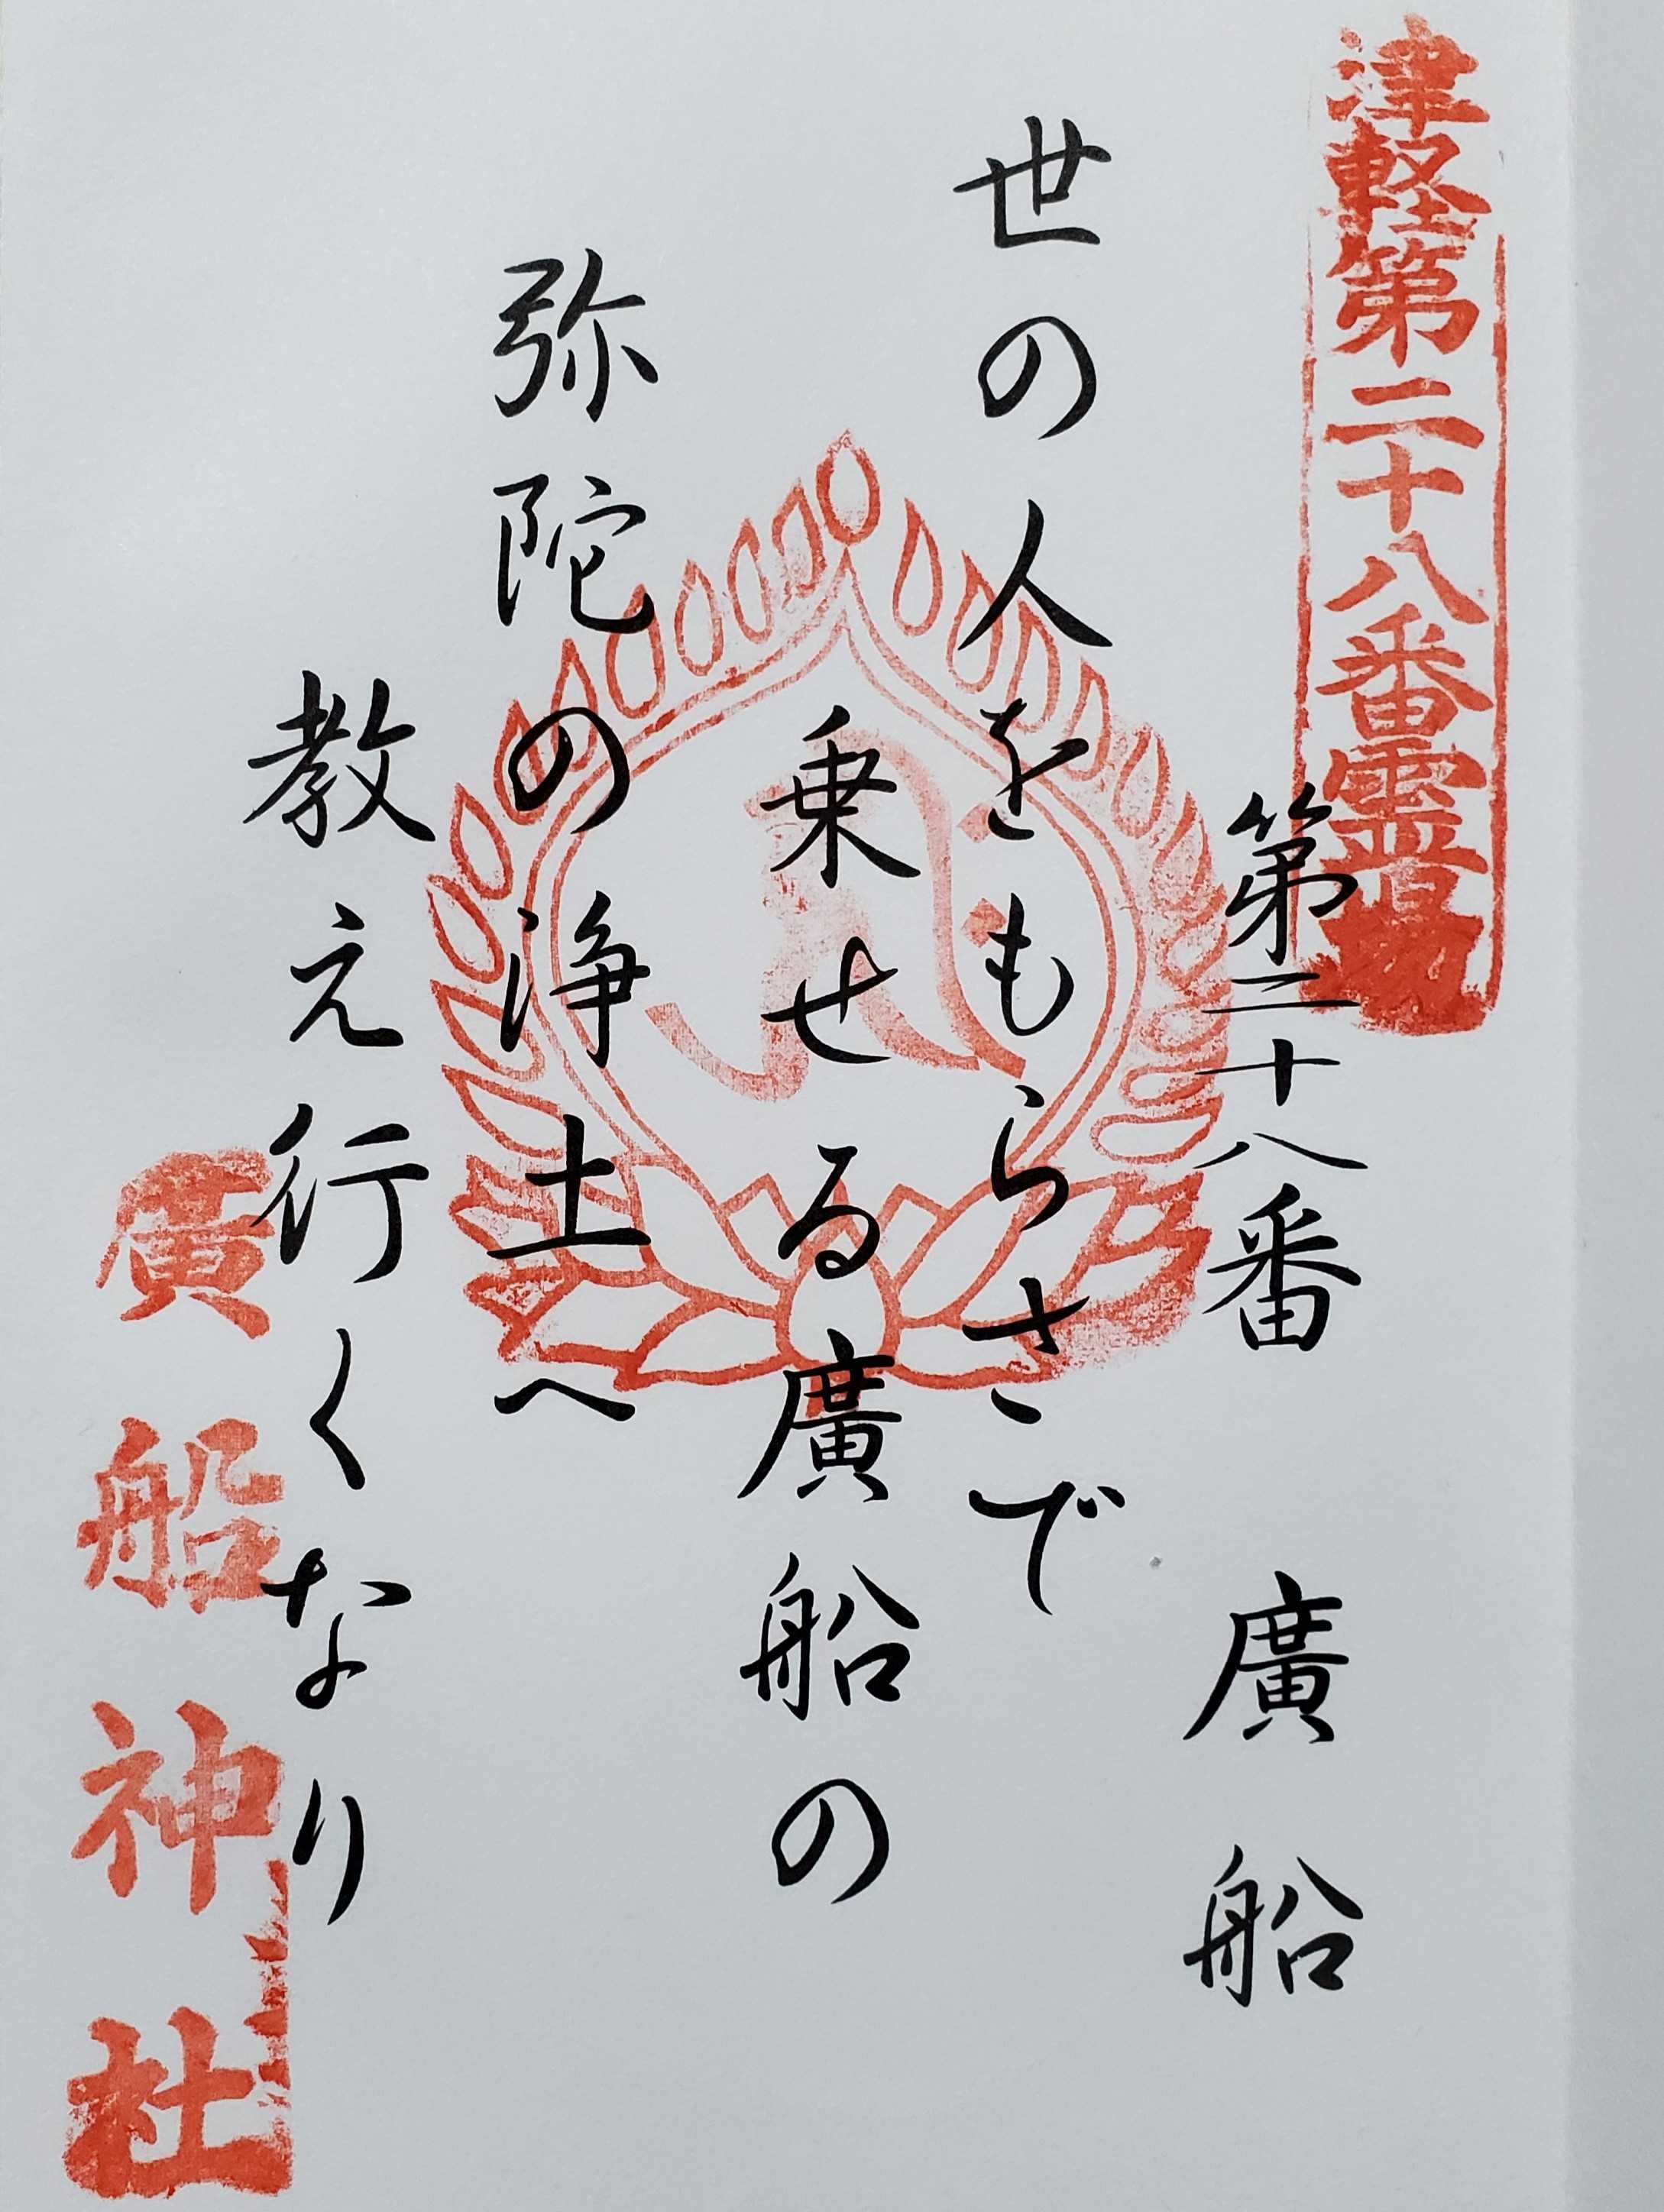 津軽第二十八番霊場
第二十八番 廣船
世の人をもらさで
乗せる廣船の
弥陀の浄土へ
教え行くなり
廣船神社